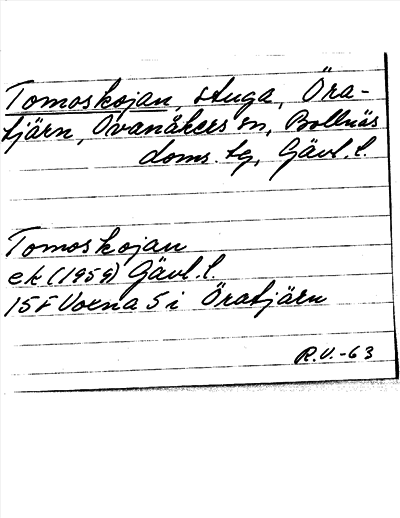 Tomoskojan, stuga, Öra-
tjärn, Ovanåkers sn, Bollnäs
doms. tg, Gävl. l.
Tomoskojan
ek (1959) Gävl. l.
15F Voxna 5 i Öratjärn
R.V.-63